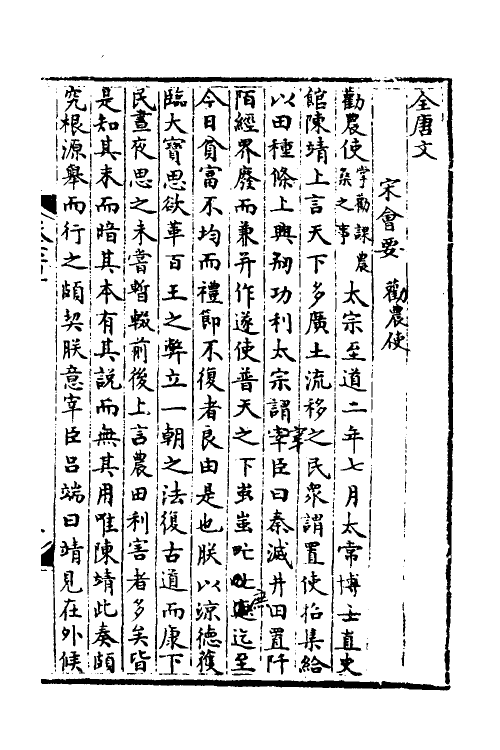 全唐文
宋會要 勸農使
勸農使掌勸課農桑之事 太宗至道二年七月太常博士直史
館陳靖上言天下多廣土流移之民衆請置使招集給
以田種條上興刱功利太宗謂宰臣曰秦滅井田置阡
陌經界廢而兼并作遂使普天之下蚩蚩 迄至
今日貧富不均而禮節不復者良由是也朕以涼德獲
臨大寶思欲革百王之弊立一朝之法復古道而康下
民晝夜思之未嘗暫輟前後上言農田利害者多矣皆
是知其末而暗其本有其說而無其用唯陳靖此奏頗
究根源舉而行之頗契朕意宰臣吕端曰靖見在外候